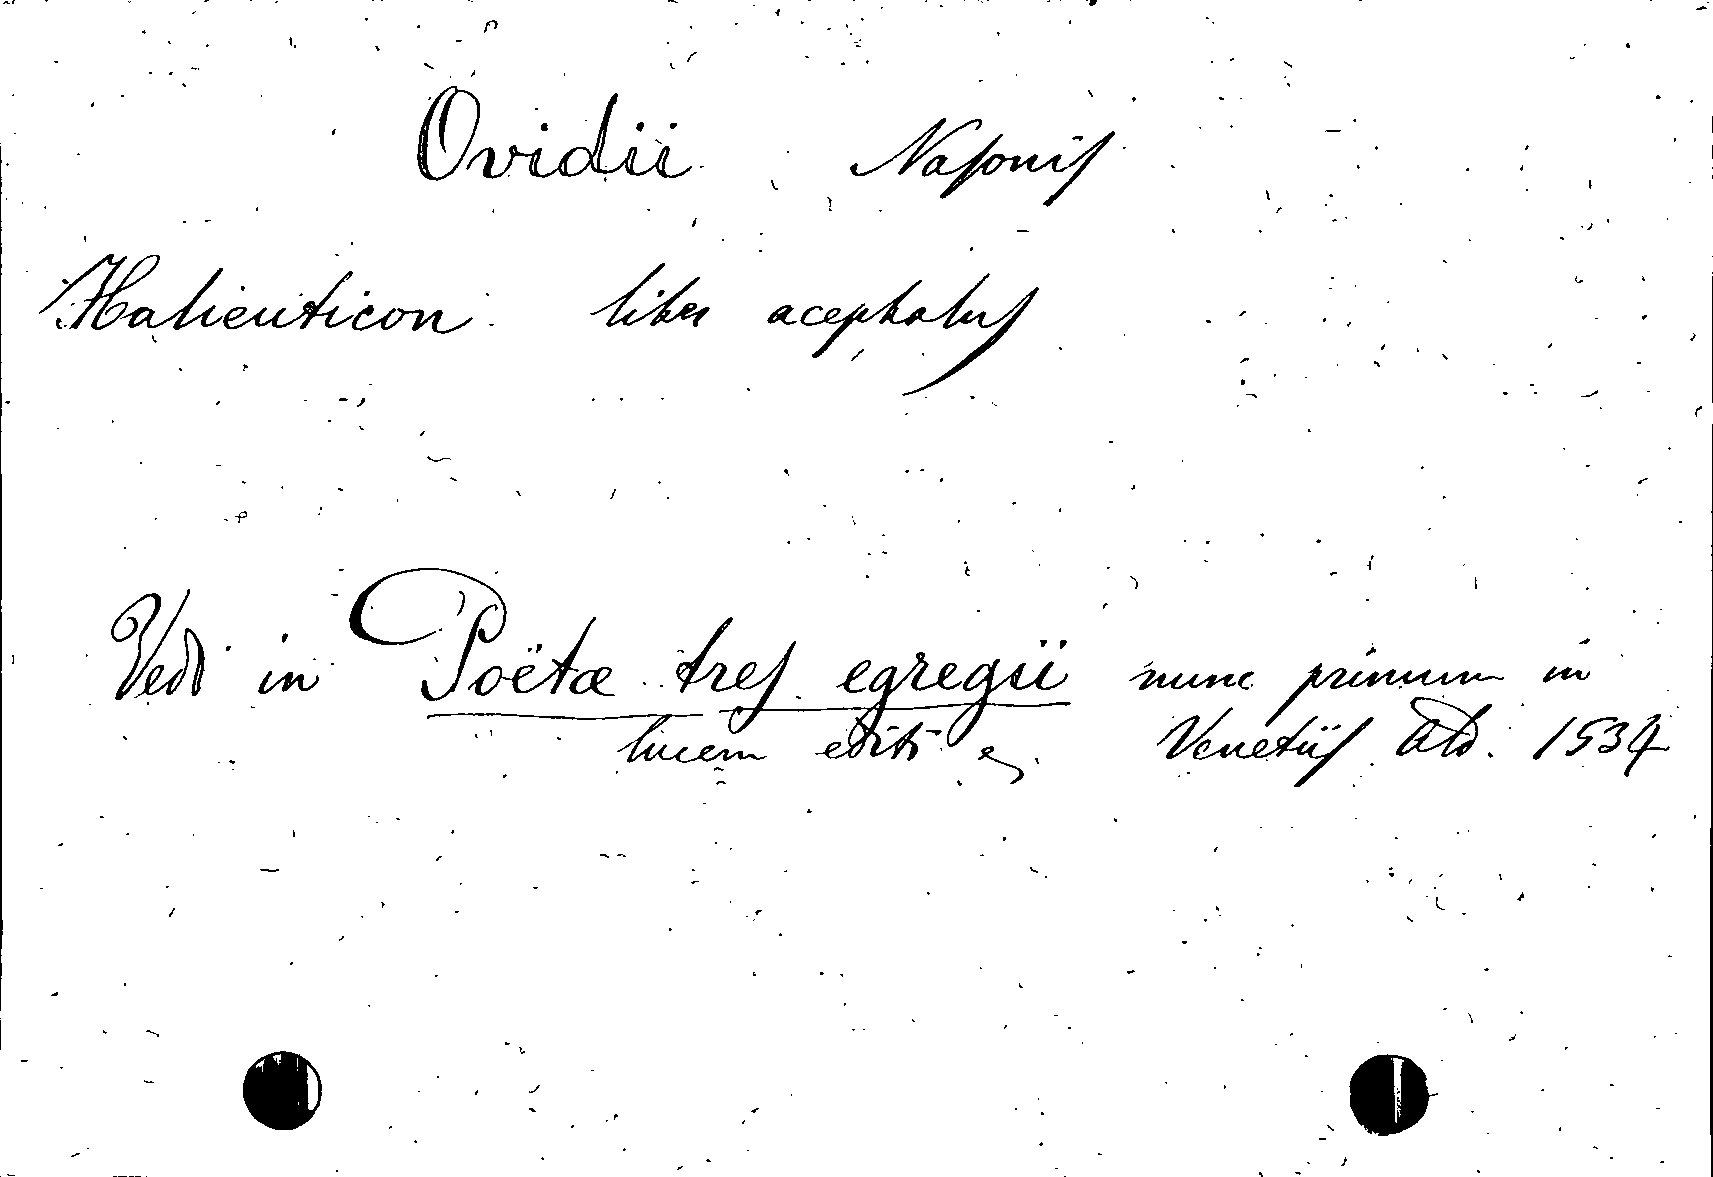 Ovidii Nasonis
Halieuticon liber acephalus
Vedi in Poëtæ tres egregii nunc primum in
lucem editi Venetiis Ald. 1534